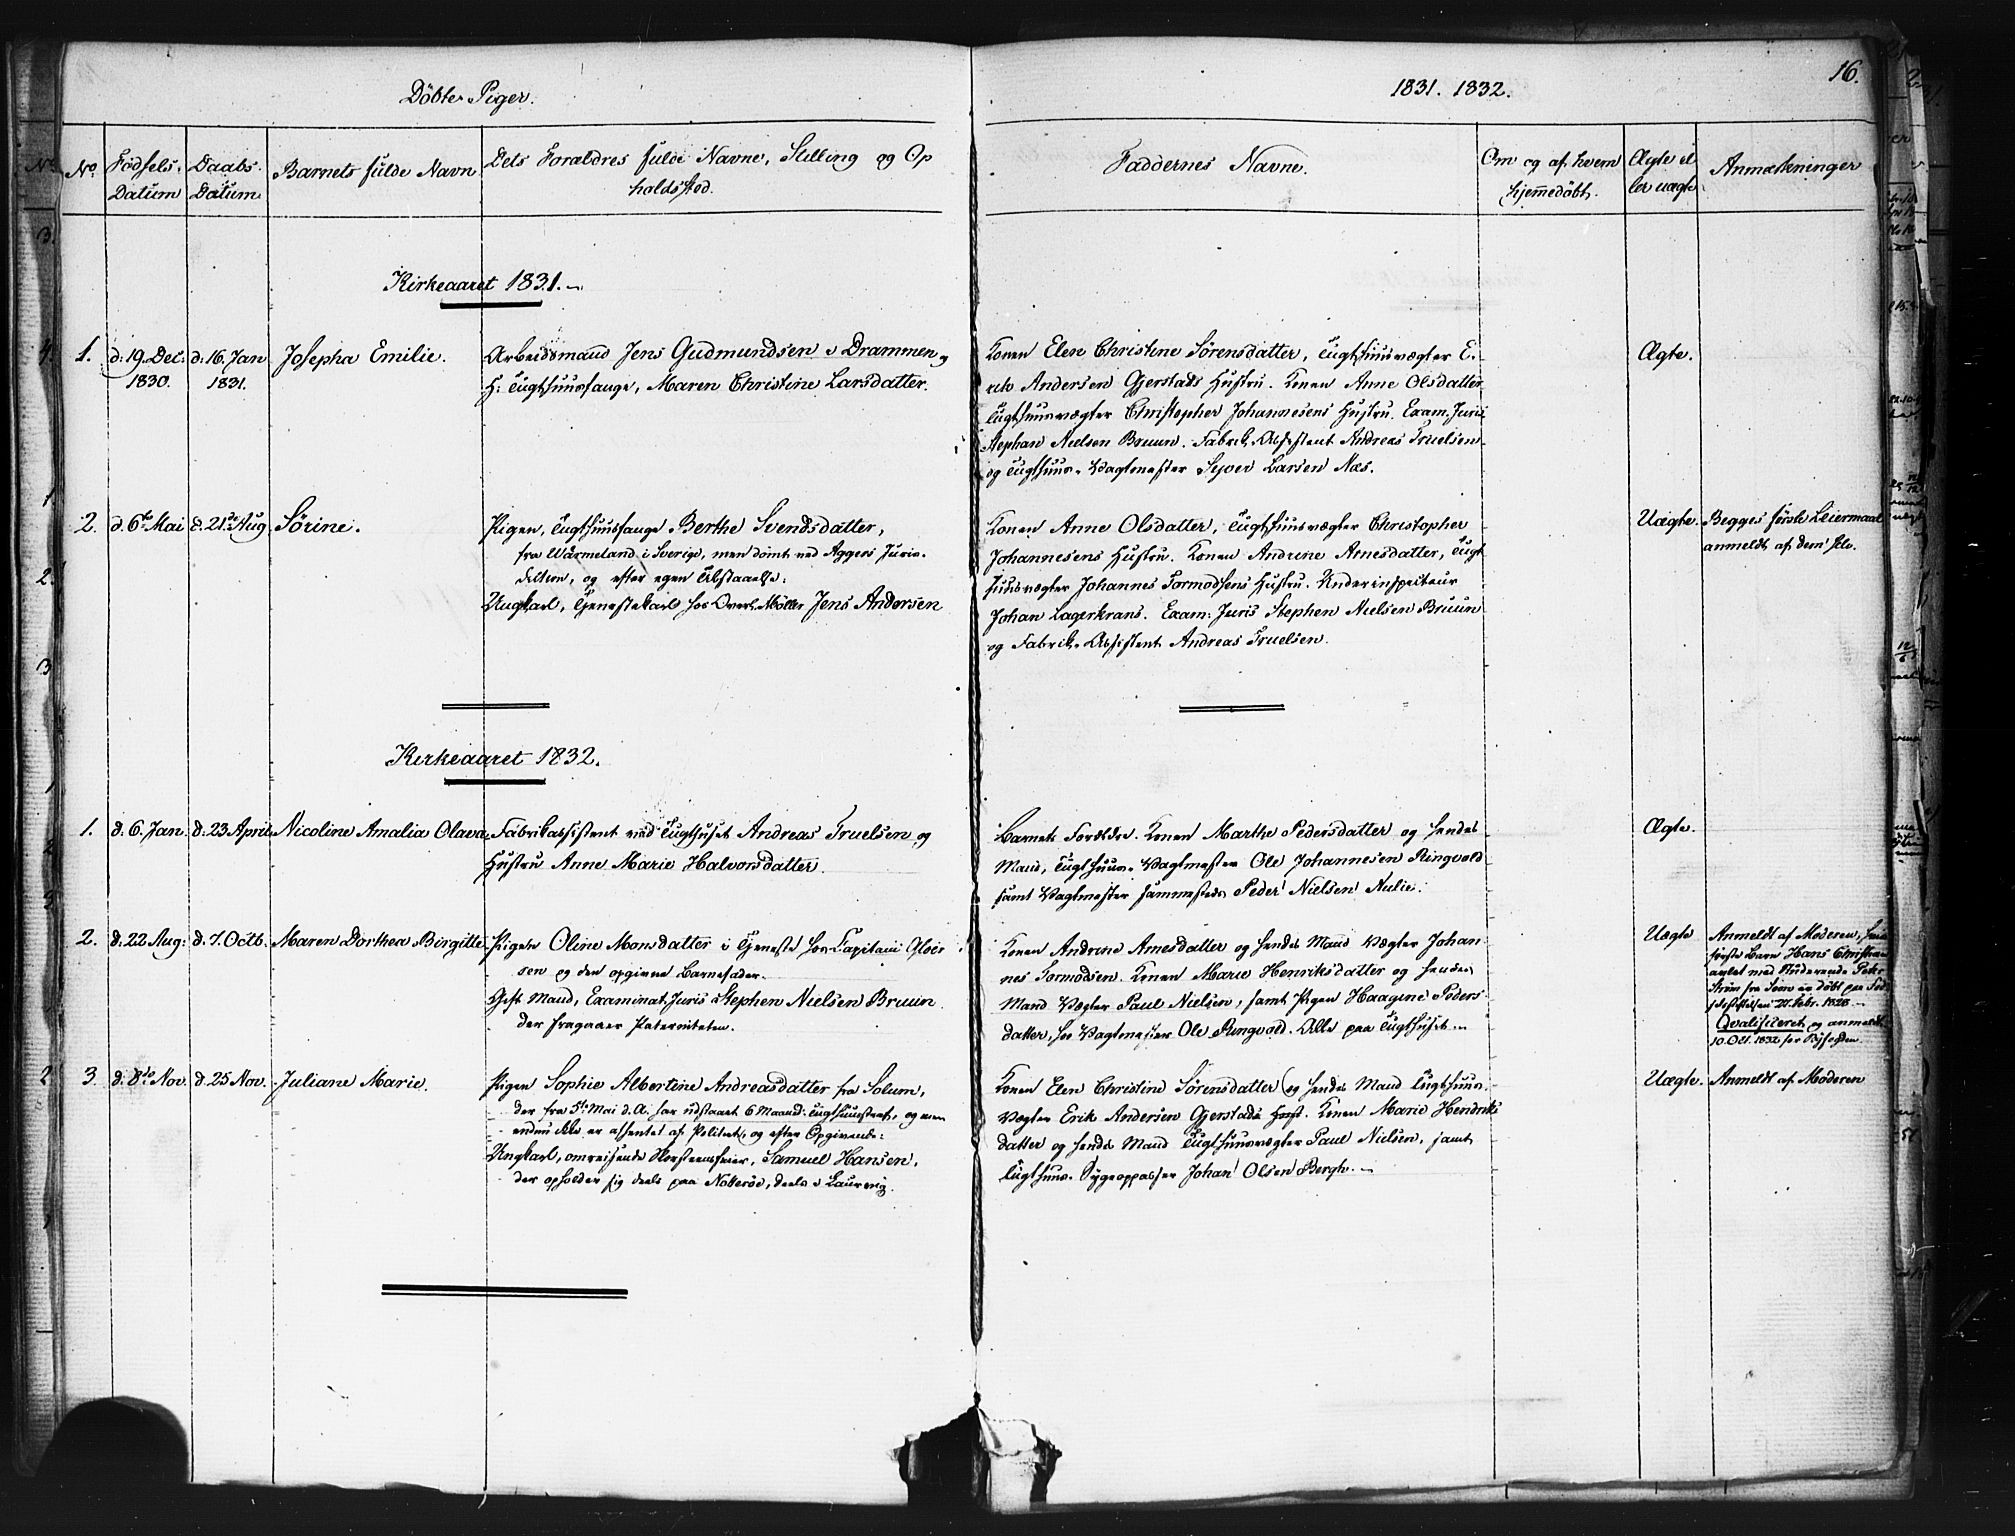 Döbte Piger.
1831. 1832.
16.
No.
Fødsels-Datum
Daabs-Datum
Barnets fulde Navn
Dets Forældres fulde Navne, Stilling og Op
holdssted.
Faddernes Navne.
Om og af hvem
hjemmedöbt.
Ægte el
ler uægte
Anmærkninger
Kirkeaaret 1831.
1.
d: 19. Dec:
1830.
d: 16. Jan
1831.
Josepha Emilie.
Arbeidsmand Jens Gudmundsen i Drammen og
H: Tugthuusfange, Maren Christine Larsdatter.
Konen Elen Christine Sörensdatter, Tugthuusvægter E-
rik Andersen Gjerstads Hustru. Konen Anne Olsdatter
Tugthuusvægter Christopher Johannesens Hustru. Exam. Juris
Stephan Nielsen Bruun. Fabrik-Assistent Andreas Truelsen
og Tugthuus-Vagtmester Sejver Larsen Næs.
Ægte.
2.
d. 6te Mai
d. 21de Aug.
Sörine.
Pigen, Tugthuusfange Berthe Svendsdatter,
fra Wärmeland i Sverige, men dömt ved Aggers Juris-
diction, og efter egen Tilstaaelse:
Ungkarl, Tjenestekarl hos Overl. Möller Jens Andersen
Konen Anne Olsdatter, Tugthuusvægter Christopher
Johannesens Hustru. Konen Andrine Arnesdatter, Tugt
huusvægter Johannes Tormodsens Hustru. Underinspecteur
Johan Lagerkrans. Exam: Juris Stephen Nielsen Bruun
og Fabrik-Assistent Andreas Truelsen.
Uægte.
Begges förste Leiermaal
anmeldt af dem selv.
Kirkeaaret 1832.
1.
d. 6. Jan.
d. 23 April
Nicoline Amalia Olava
Fabrikassistent ved Tugthuset Andreas Truelsen og
Hustru Anne Marie Halvorsdatter.
Barnets Forældre. Konen Marthe Pedersdatter og hendes
Mand, Tugthuus-Vagtmester Ole Johannesen Ringvold
samt Vagtmester sammesteds Peder Nielsen Aulie.
Ægte.
2.
d. 22 Aug:
d. 7. Octb.
Maren Dorthea Birgitte
Pigen Oline Monsdatter i Tjeneste hos Capitain Gloer
sen og den opgivne Barnefader
Gift Mand, Examinat. Juris Stephen Nielsen Bruun
der fragaaer Paterniteten.
Konen Andrine Arnesdatter og hendes Mand Vægter Johan-
nes Tormodsen. Konen Marie Henriksdatter og hendes
Mand Vægter Paul Nielsen, samt Pigen Haagine Peders
datter, hos Vagtmester Ole Ringvold. Alle paa Tugthuset.
Uægte
Anmeldt af Moderen, hvis
förste Barn Hans Christian
avlet med Studerende Peter
Ström fra Soon er döbt paa Föd
selsstiftelsen 27. Febr. 1828.
Qvalificeret og anmeldt
10. Oct. 1832 for Byfogden.
3
d. 8de Nov.
d. 25 Nov.
Juliane Marie.
Pigen Sophie Albertine Andreasdatter fra Solum,
der fra 5te Mai d. A. har udstaaet 6 Maand. Tugthuusstraf, og nu
endnu ikke er afhentet af Politiet, og efter Opgivende:
Ungkarl, omreisende Skorsteensfeier, Samuel Hansen,
der opholder sig deels paa Nötteröe, deels i Laurvig.
Konen Elen Christine Sörensdatter og hendes Mand Tugthuus-
Vægter Erik Andersen Gjerstad. Konen Marie Hendriks
datter og hendes Mand Tugthuusvægter Paul Nielsen, samt
Tugthuus-Sygeopasser Johan Olsen Bergh.
Uægte.
Anmeldt af Moderen